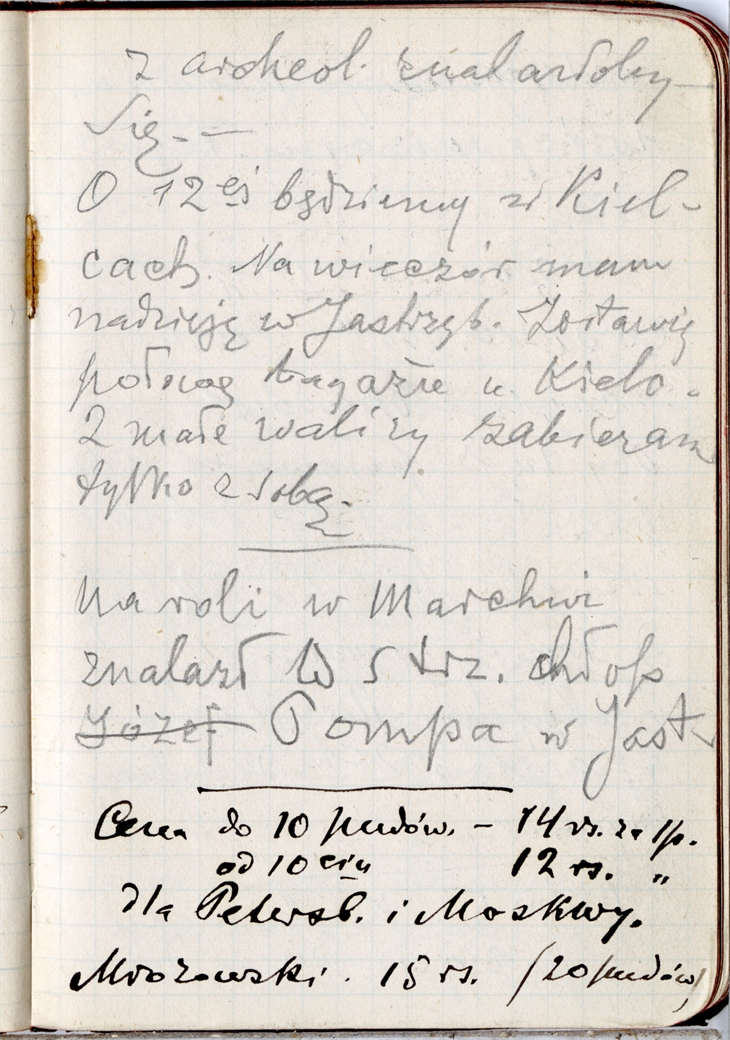 z archeol. znalazłoby
się. —
O 12ej będziemy w Kiel-
cach. Na wieczór mam
nadzieję w Jastrzęb. Zostawię
pełno bagażu u Kielc.
2 małe walizy zabieram
tylko z sobą.
Na roli w Marchwi
znalazł 5 trz. chłop
Józef Pompa w Jast
Cena do 10 pudów. – 14 rs. za 1 p.
od 10ciu 12 rs. „
dla Petersb. i Moskwy.
Mrozowski. 15 rs. (20 pudów)